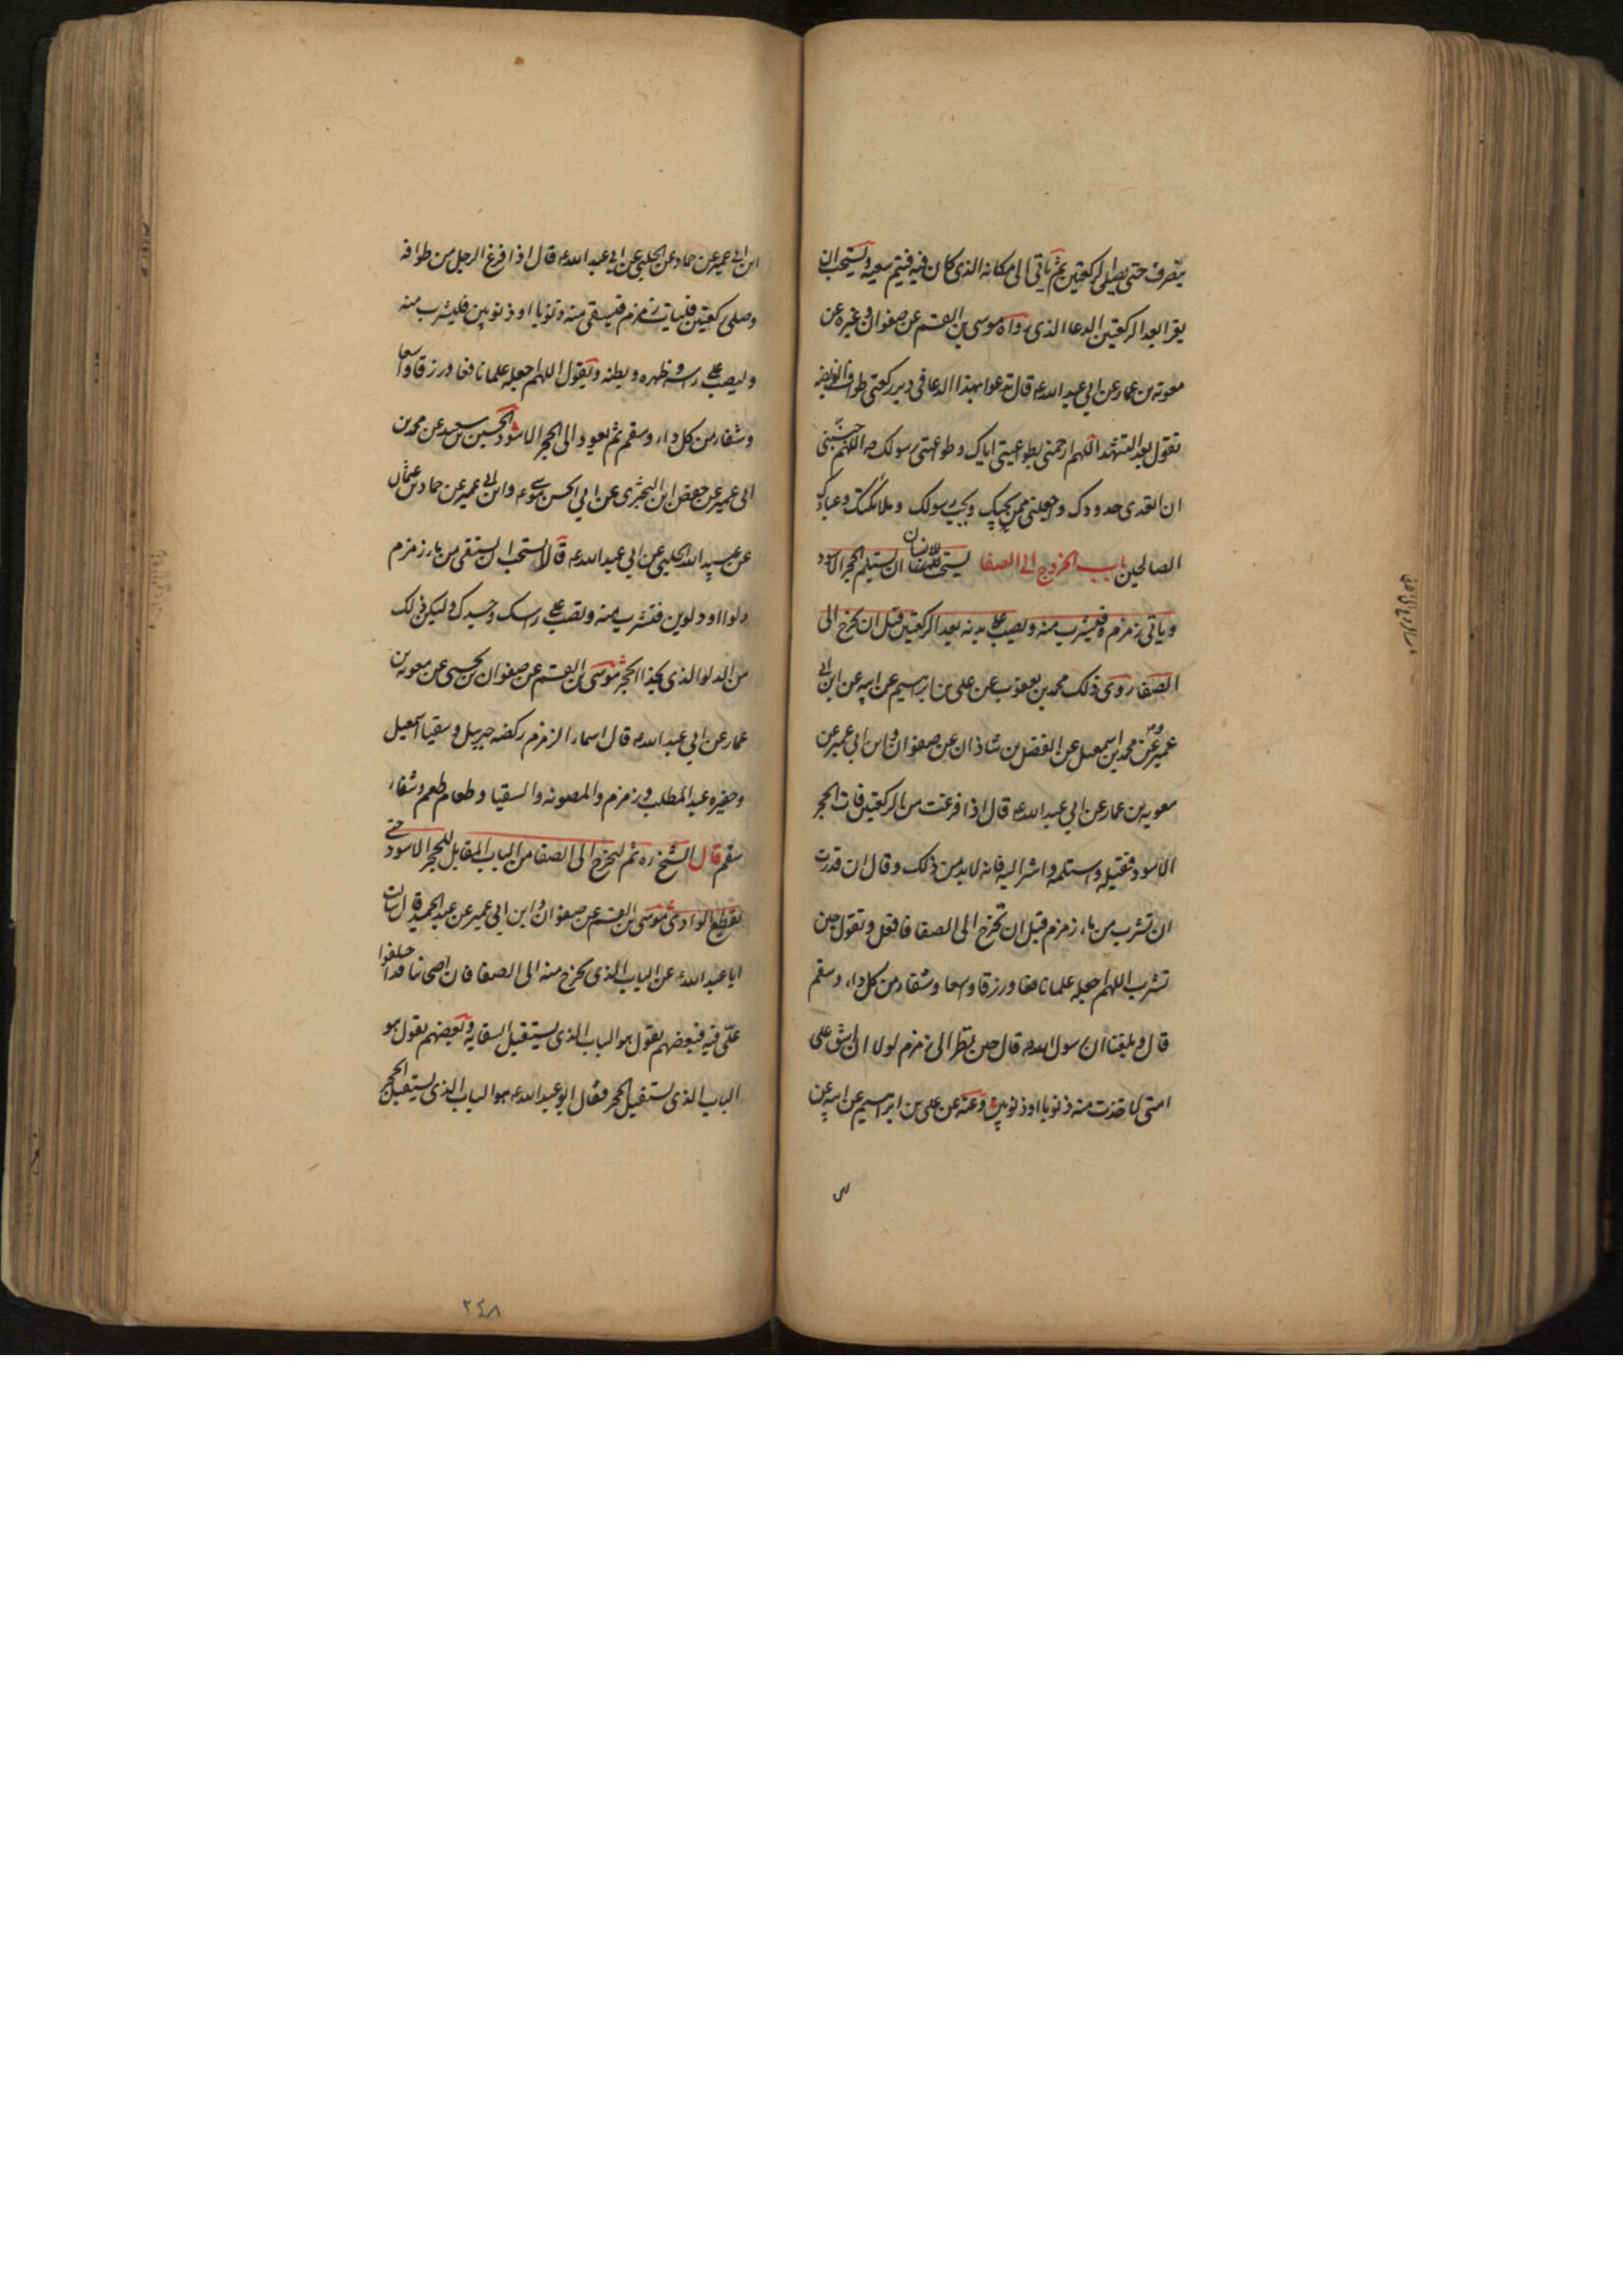 ينصرف حتى يصلى الركعتين ثم ياتى الى مكانه الذى كان فيه فيتم سعيه ويستحب ان
يقرا بعد الركعتين الدعا الذى رواه موسى بن القسم عن صفوان وغيره عن
معوية بن عمار عن ابي عبد الله ع قال تدعوا بهذا الدعا فى دبر ركعتى طواف الفريضه
تقول بعد التشهد اللهم ارحمنى بطواعيتى اياك وطواعيتى رسولك ص اللهم جنبنى
ان اتعدى حدودك واجعلنى ممن يحبك ويحب رسولك وملائكتك وعبادك
الصالحين باب الخروج الى الصفا يستحب للانسان ان يستلم الحجر الاسود
وياتى زمزم فليشرب منه ويصب على بدنه بعد الركعتين قبل ان يخرج الى
الصفا روى ذلك محمد بن يعقوب عن على بن ابراهيم عن ابيه عن ابن ابي
عمير وعن محمد بن اسمعيل عن الفضل بن شاذان عن صفوان وابن ابي عمير عن
معويه بن عمار عن ابي عبد الله ع قال اذا فرغت من الركعتين فات الحجر
الاسود فقبله واستلمه واشر اليه فانه لا بد من ذلك وقال ان قدرت
ان تشرب من ماء زمزم قبل ان تخرج الى الصفا فافعل وتقول حين
تشرب اللهم اجعله علما نافعا ورزقا واسعا وشفاء من كل داء وسقم
قال وبلغنا ان رسول الله ص قال حين نظر الى زمزم لولا ان اشق على
امتى لاخذت منه ذنوبا او ذنوبين وعنه عن على بن ابراهيم عن ابيه عن
ابن ابي عمير عن حماد عن الحلبي عن ابي عبد الله ع قال اذا فرغ الرجل من طوافه
وصلى ركعتين فليات زمزم فليستقى منه ذنوبا او ذنوبين فليشرب منه
وليصب على راسه وظهره وبطنه ويقول اللهم اجعله علما نافعا ورزقا واسعا
وشفاء من كل داء وسقم ثم يعود الى الحجر الاسود الحسين بن سعيد عن محمد بن
ابى عمير عن حفص ابن البخترى عن ابي الحسن موسى ع وابن ابي عمير عن حماد بن عثمان
عن عبيد الله الحلبي عن ابي عبد الله ع قالا يستحب ان يستقى من ماء زمزم
دلوا او دلوين فتشرب منه وتصب على راسك وجسدك وليكن ذلك
من الدلو الذى بحذا الحجر موسى بن القسم عن صفوان بن يحيى عن معويه بن
عمار عن ابي عبد الله ع قال اسماء الزمزم ركضه جبرئيل وسقيا اسمعيل
وحفيره عبد المطلب وزمزم والمصونه والسقيا وطعام طعم وشفاء
سقم قال الشيخ ره ثم ليخرج الى الصفا من الباب المقابل للحجر الاسود حتى
يقطع الوادى موسى بن القسم عن صفوان وابن ابي عمير عن عبد الحميد قال سالت
ابا عبد الله ع عن الباب الذى يخرج منه الى الصفا فان اصحابنا قد اختلفوا
على فيه فبعضهم يقول هو الباب الذى يستقبل السقايه وبعضهم يقول هو
الباب الذى يستقبل الحجر فقال ابو عبد الله ع هو الباب الذى يستقبل الحجر
٢٤٨